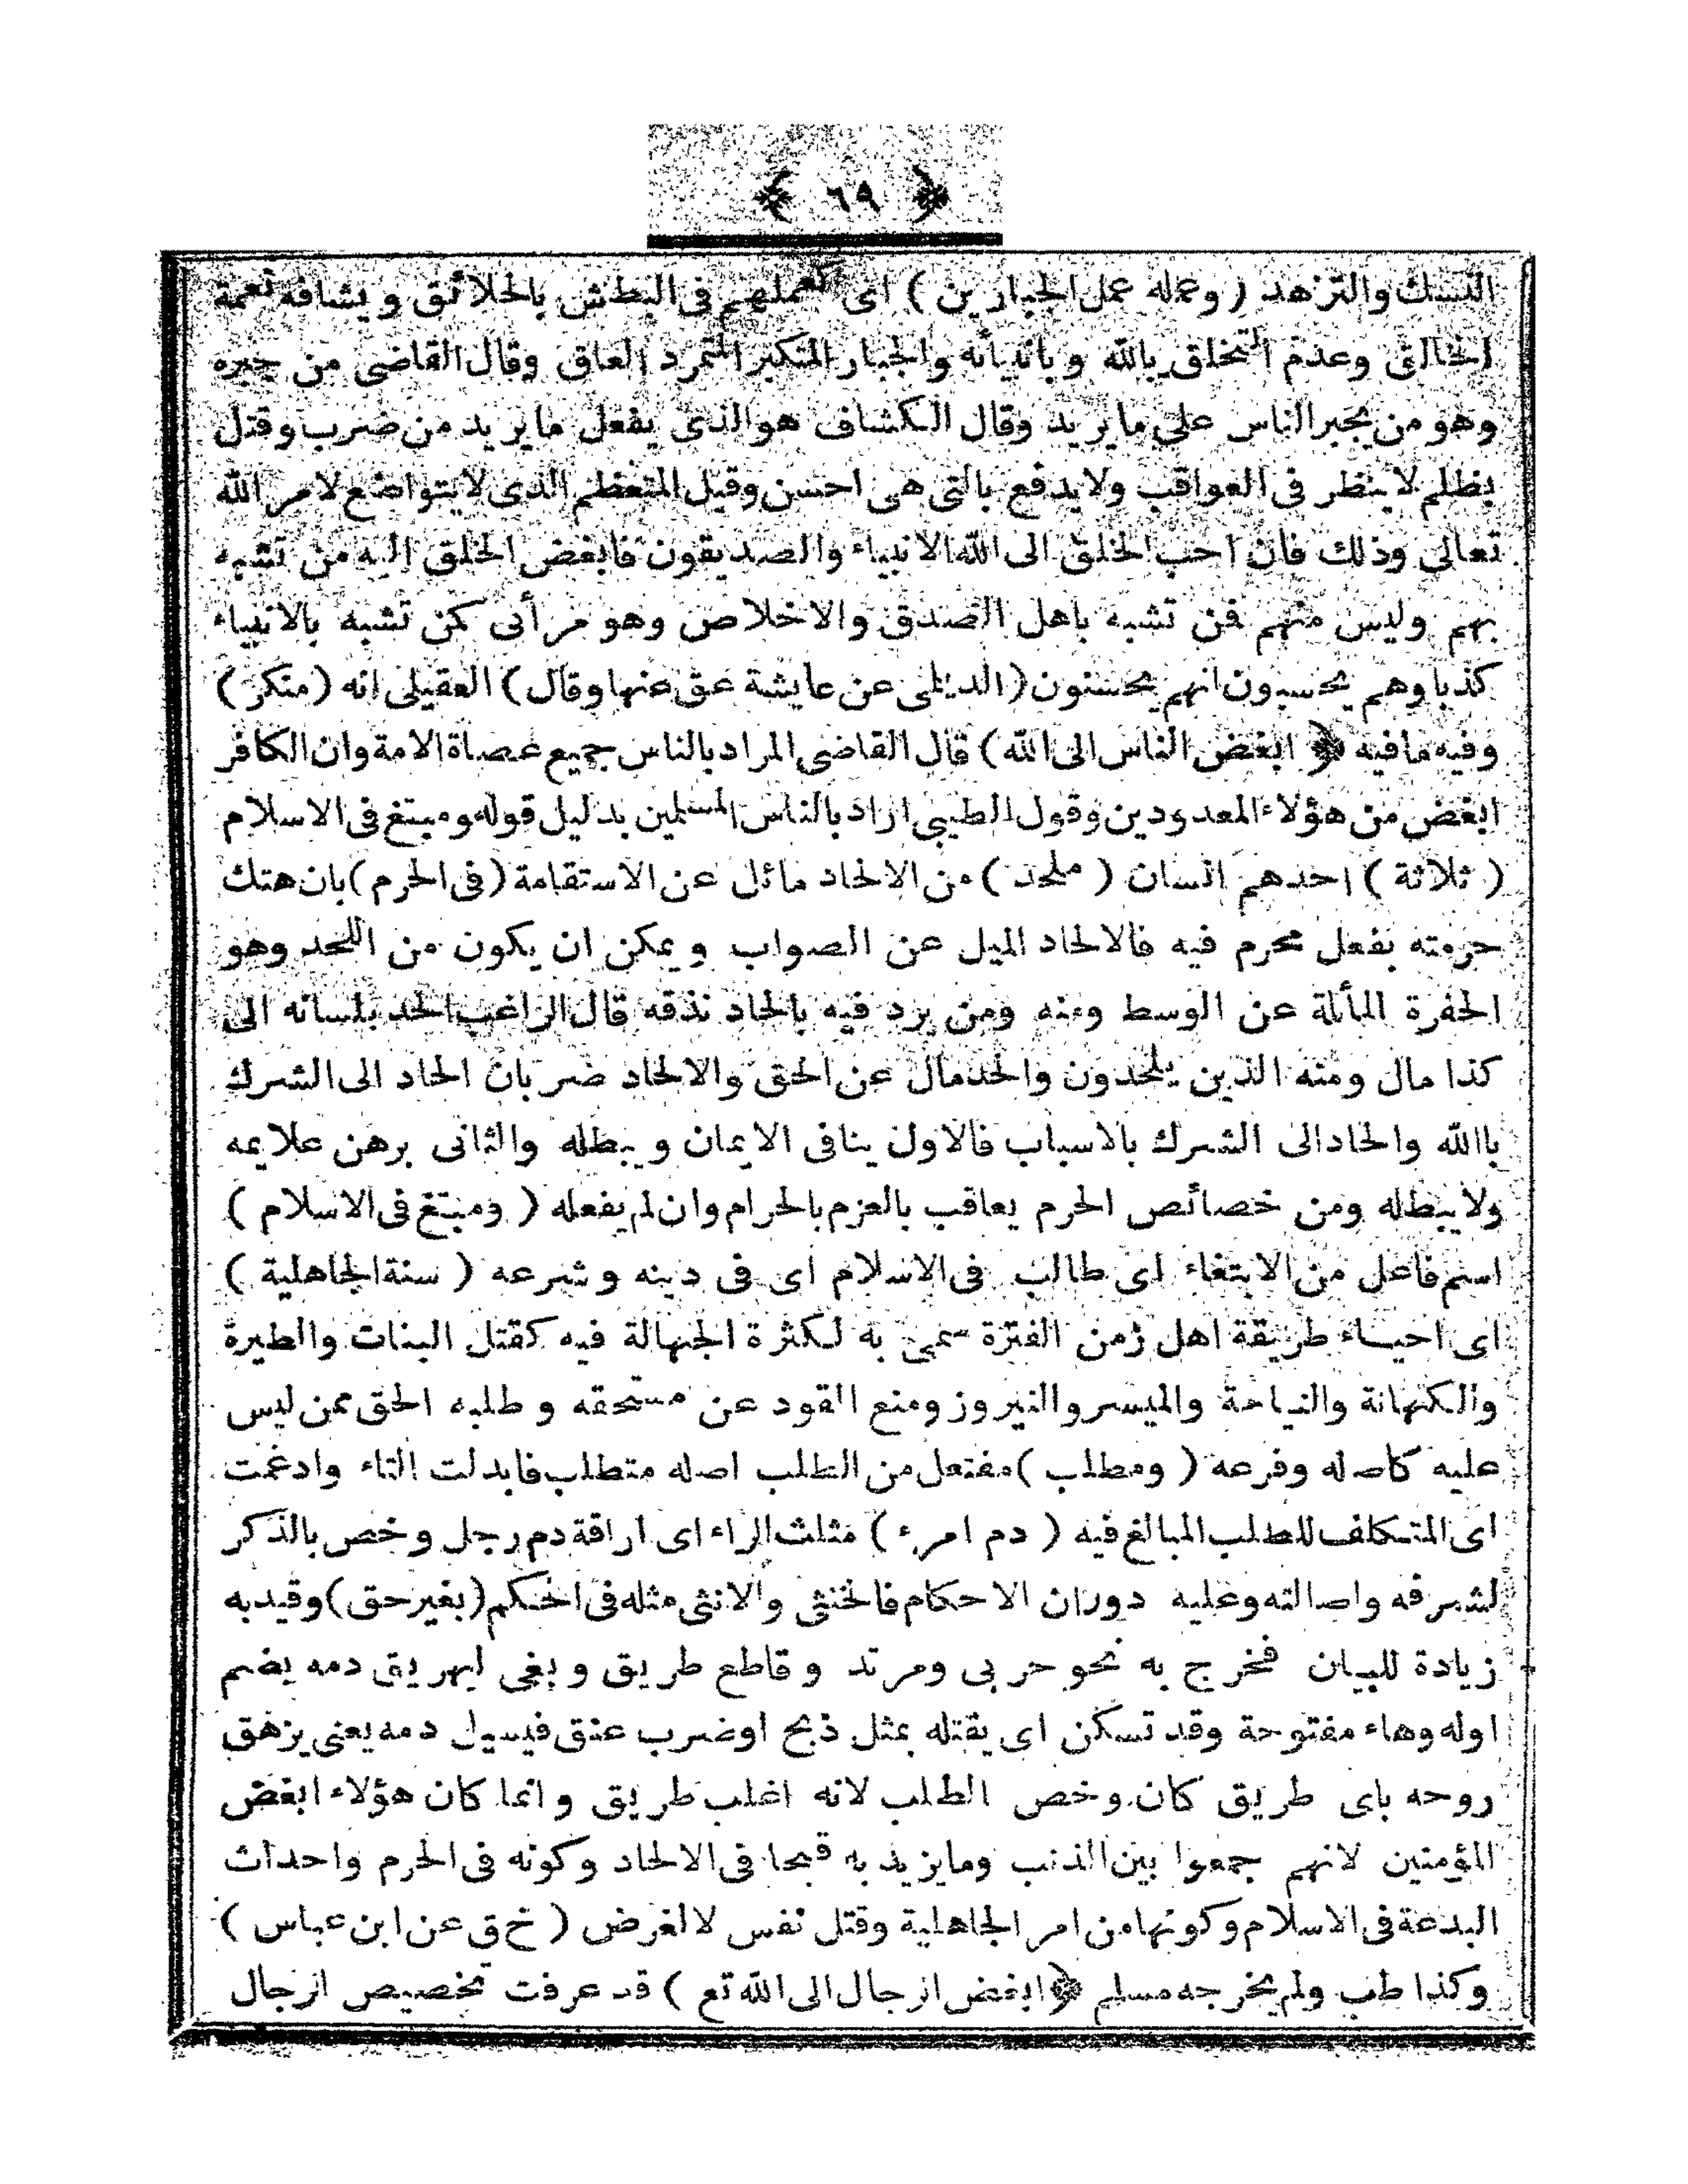 ﴿ ٦٩ ﴾
النسك والتزهد ( وعمله عمل الجبارين ) اى كعملهم فى البطش بالخلائق و يشافه نعمة
الخالق وعدم التخلق بالله و بانبيأئه والجبار المتكبر المتمرد العاق وقال القاضى من جبره
وهو من يجبر الناس على ما يريد وقال الكشاف هو الذى يفعل ما يريد من ضرب وقتل
بظلم لا ينظر فى العواقب ولا يدفع بالتى هى احسن وقيل المتعظم الذى لا يتواضع لامر الله
تعالى وذلك فان احب الخلق الى الله الانبياء والصديقون فابغض الخلق اليه من تشبه
بهم وليس منهم فمن تشبه باهل الصدق والاخلاص وهو مرأنى كمن تشبه بالانبياء
كذبا وهم يحسبون انهم يحسنون ( الديلمى عن عايشة عق عنها وقال ) العقيلى انه ( منكر )
وفيه ما فيه ﴿ ابغض الناس الى الله ) قال القاضى المراد بالناس جميع عصاة الامة وان الكافر
ابغض من هؤلاء المعدودين وقول الطيبى اراد بالناس المسلمين بدليل قوله ومبتغ فى الاسلام
( ثلاثة ) احدهم انسان ( ملحد ) من الالحاد مائل عن الاستقامة ( فى الحرم ) بان هتك
حرمته بفعل محرم فيه فالالحاد الميل عن الصواب و يمكن ان يكون من اللحد وهو
الحفرة المأئلة عن الوسط ومنه ومن يرد فيه بالحاد نذقه قال الراغب الحد بلسانه الى
كذا مال ومنه الذين يلحدون والحد مال عن الحق والالحاد ضربان الحاد الى الشرك
باالله والحاد الى الشرك بالاسباب فالاول ينافى الايمان و يبطله والثانى يرهن علايمه
ولا يبطله ومن خصائص الحرم يعاقب بالعزم بالحرام وان لم يفعله ( ومبتغ فى الاسلام )
اسم فاعل من الابتغاء اى طالب فى الاسلام اى فى دينه و شرعه ( سنة الجاهلية )
اى احياء طريقة اهل زمن الفترة سمى به لكثرة الجهالة فيه كقتل البنات والطيرة
والكهانة والنياحة والميسر والنيروز ومنع القود عن مستحقه و طلبه الحق ممن ليس
عليه كاصله وفرعه ( ومطلب ) مفتعل من الطلب اصله متطلب فابدلت التاء وادغمت
اى المتكلف للطلب المبالغ فيه ( دم امرء ) مثلث الراء اى اراقة دم رجل وخص بالذكر
لشرفه واصالته وعليه دوران الاحكام فالخنثى والانثى مثله فى الحكم ( بغير حق ) وقيد به
زيادة للبيان فخرج به نحو حربى ومرتد و قاطع طريق و بغى ليهريق دمه يضم
اوله وهاء مفتوحة وقد تسكن اى يقتله بمثل ذبح او ضرب عنق فيسيل دمه يعنى يزهق
روحه باى طريق كان وخص الطلب لانه اغلب طريق و انما كان هؤلاء ابغض
المؤمنين لانهم جمعوا بين الذنب وما يزيد به قبحا فى الالحاد وكونه فى الحرم واحداث
البدعة فى الاسلام وكونها من امر الجاهلية وقتل نفس لا لغرض ( خ ق عن ابن عباس )
وكذا طب ولم يخرجه مسلم ﴿ ابغض الرجال الى الله تع ) قد عرفت تخصيص الرجال